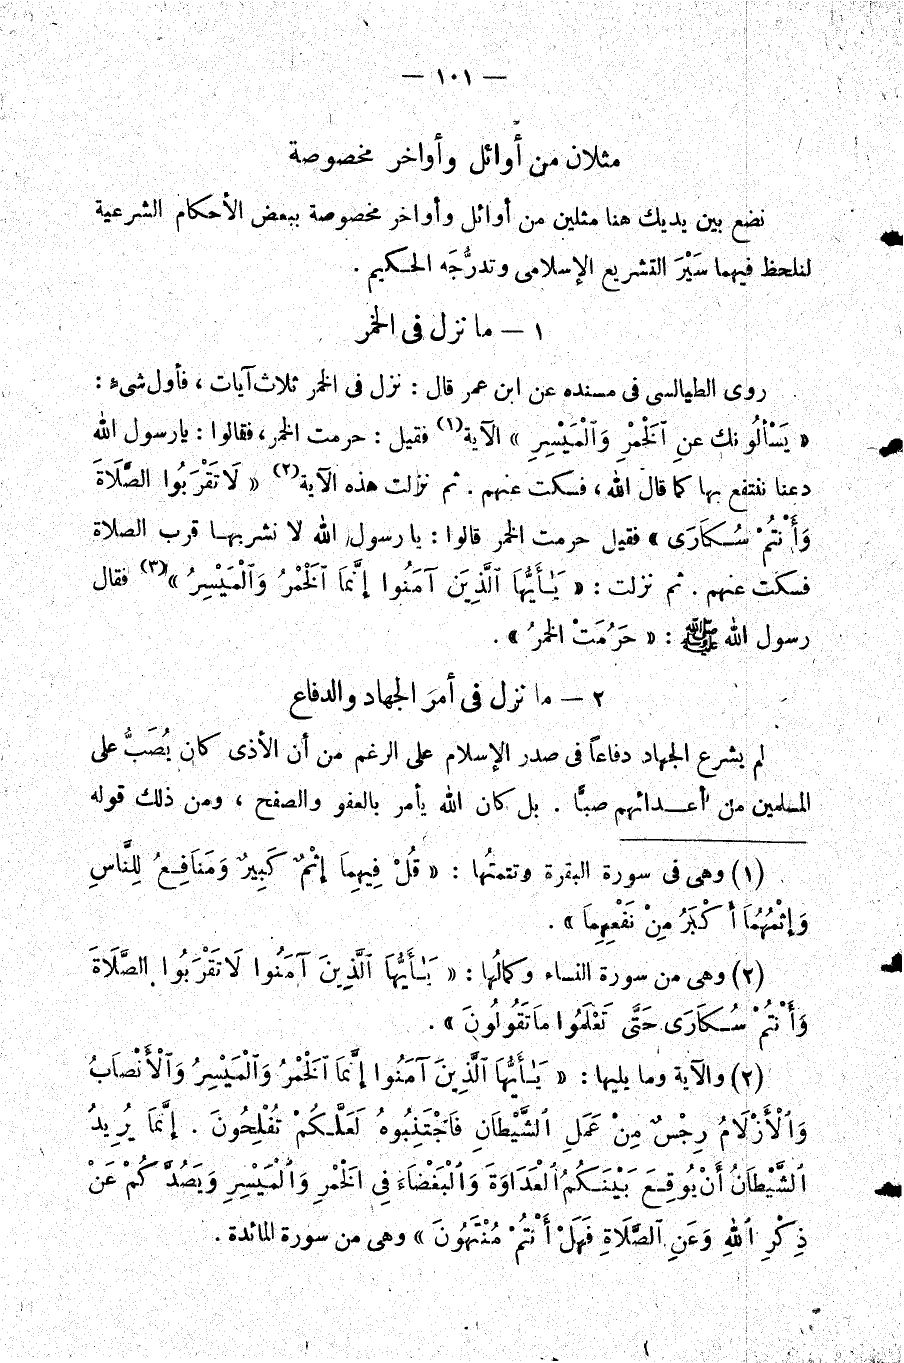 — ١٠١ —
مثلان من أوائل وأواخر مخصوصة
نضع بين يديك هنا مثلين من أوائل وأواخر مخصوصة ببعض الأحكام الشرعية
لنلحظ فيهما سَيْرَ التشريع الإسلامى وتدرُّجَه الحكيم .
١ — ما نزل فى الخمر
روى الطيالسى فى مسنده عن ابن عمر قال : نزل فى الخمر ثلاث آيات ، فأول شىء :
« يَسْألُونك عنِ ٱلْخَمْرِ وَٱلْمَيْسِرِ » الآية(١) فقيل : حرمت الخمر ، فقالوا : يارسول الله
دعنا ننتفع بها كما قال الله ، فسكت عنهم . ثم نزلت هذه الآية(٢) « لَا تَقْرَبُوا الصَّلَاةَ
وَأَنْتُمْ سُكَارَى » فقيل حرمت الخمر قالوا : يا رسول الله لا نشربها قرب الصلاة
فسكت عنهم . ثم نزلت : « يَٰأَيُّهَا ٱلَّذِينَ آمَنُوا إِنَّمَا ٱلْخَمْرُ وَٱلْمَيْسِرُ »(٣) فقال
رسول الله ﷺ : « حَرُمَتْ الخمرُ » .
٢ — ما نزل فى أمر الجهاد والدفاع
لم يشرع الجهاد دفاعاً فى صدر الإسلام على الرغم من أن الأذى كان يُصَبُّ على
المسلمين من أعدائهم صبًّا . بل كان الله يأمر بالعفو والصفح ، ومن ذلك قوله
(١) وهى فى سورة البقرة وتتمتُها : « قُلْ فِيهِمَا إِثْمٌ كَبِيرٌ وَمَنَافِعُ لِلنَّاسِ
وَإِثْمُهُمَا أَكْبَرُ مِنْ نَفْعِهِمَا » .
(٢) وهى من سورة النساء وكمالُها : « يَٰأَيُّهَا ٱلَّذِينَ آمَنُوا لَا تَقْرَبُوا الصَّلَاةَ
وَأَنْتُمْ سُكَارَى حَتَّى تَعْلَمُوا مَا تَقُولُونَ » .
(٢) والآية وما يليها : « يَٰأَيُّهَا ٱلَّذِينَ آمَنُوا إِنَّمَا ٱلْخَمْرُ وَٱلْمَيْسِرُ وَٱلْأَنْصَابُ
وَٱلْأَزْلَامُ رِجْسٌ مِنْ عَمَلِ ٱلشَّيْطَانِ فَاجْتَنِبُوهُ لَعَلَّكُمْ تُفْلِحُونَ . إِنَّمَا يُرِيدُ
ٱلشَّيْطَانُ أَنْ يُوقِعَ بَيْنَكُمُ ٱلْعَدَاوَةَ وَٱلْبَغْضَاءَ فِي الْخَمْرِ وَالْمَيْسِرِ وَيَصُدَّكُمْ عَنْ
ذِكْرِ ٱللهِ وَعَنِ ٱلصَّلَاةِ فَهَلْ أَنْتُمْ مُنْتَهُونَ » وهى من سورة المائدة .